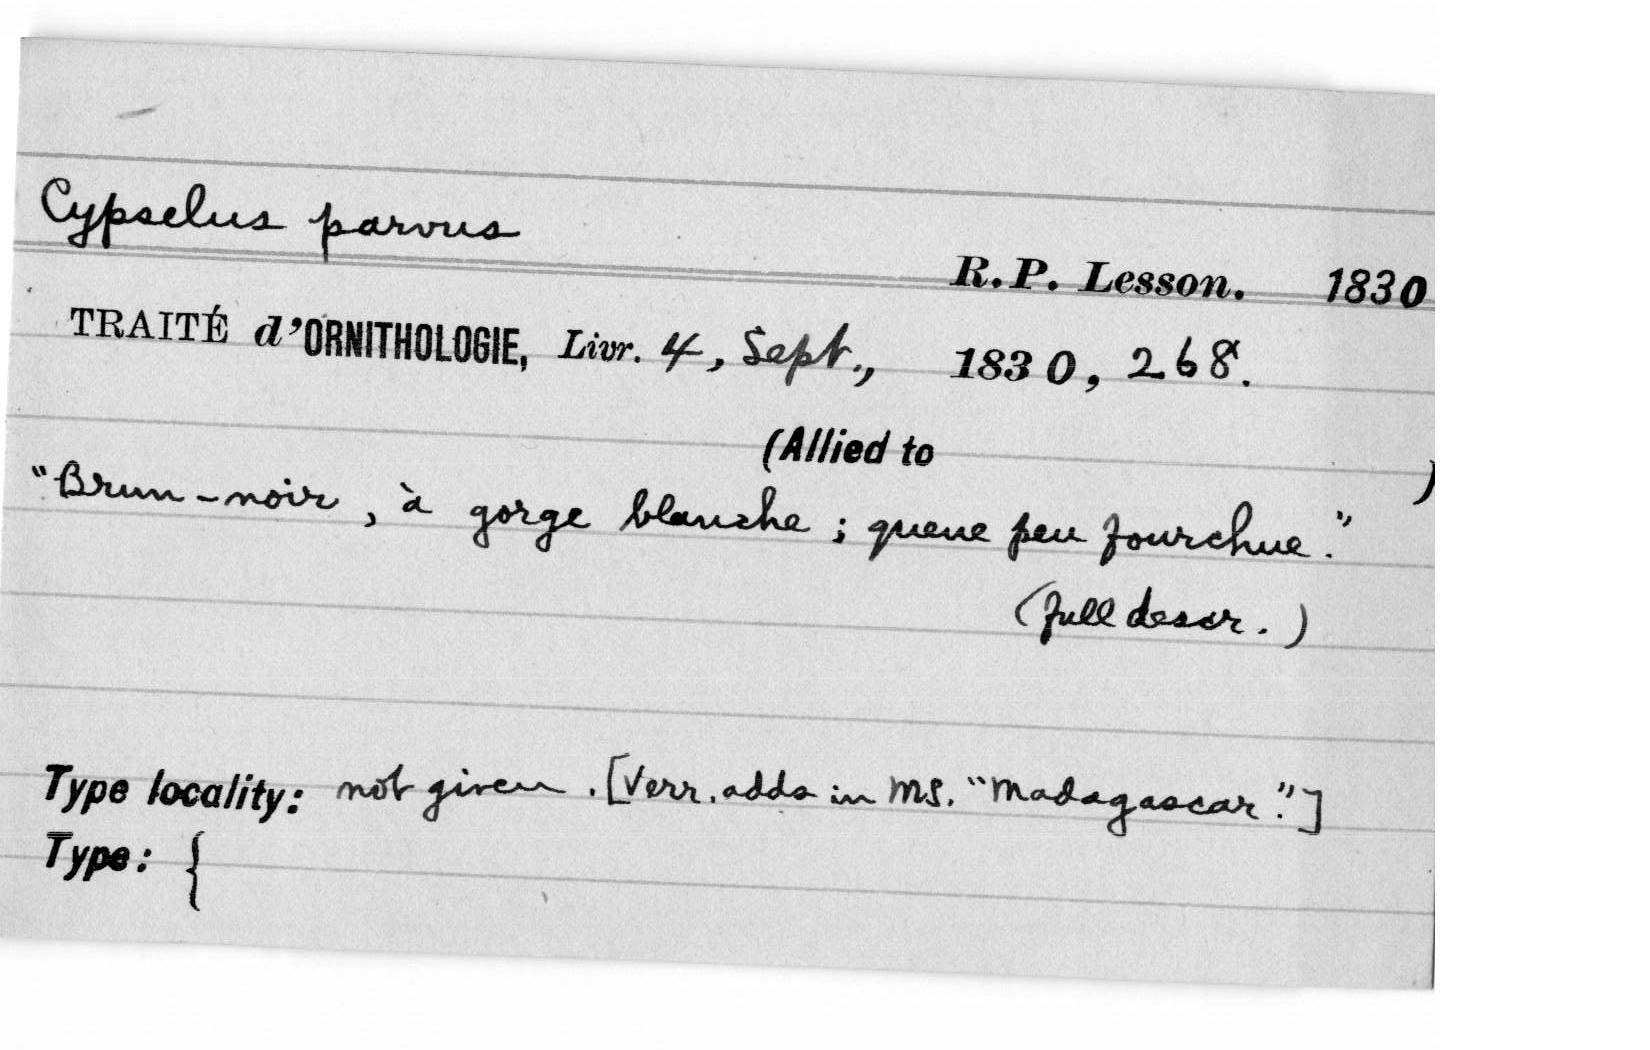 Cypselus parvus
R.P. Lesson. 1830
TRAITÉ d'ORNITHOLOGIE, Livr. 4, Sept., 1830, 268.
(Allied to )
"Brun-noir, à gorge blanche; queue peu fourchue."
(full descr.)
Type locality: not given. [Verr. adds in MS. "Madagascar".]
Type: {